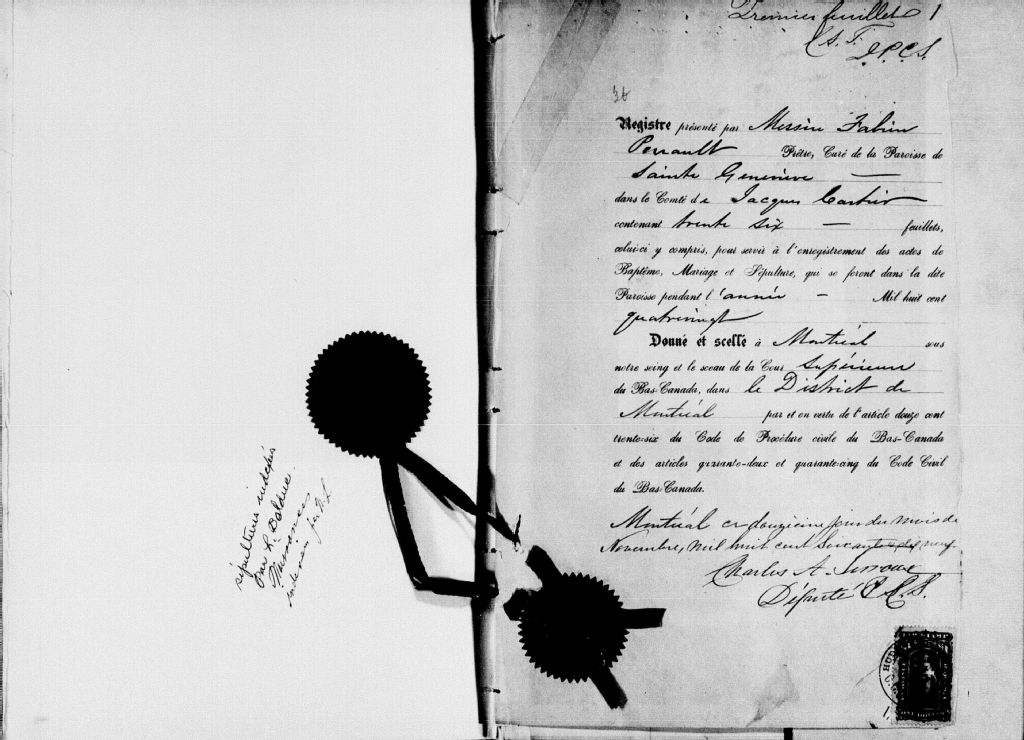 sépultures indexées
Par L. Dalduc.
Naissances
Premier feuillet 1
C. A. T.
D.P.C.S.
36
Registre présenté par Messire Fabien
Perrault Prêtre, Curé de la Paroisse de
Sainte Geneviève —
dans le Comté de Jacques Cartier
contenant trente six — feuillets,
celui-ci y compris, pour servir à l'enregistrement des actes de
Baptême, Mariage et Sépulture, qui se feront dans la dite
Paroisse pendant l'année — Mil huit cent
quatrevingt
Donné et scellé à Montréal sous
notre seing et le sceau de la Cour Supérieure
du Bas-Canada, dans le District de
Montréal par et en vertu de l'article douze cent
trente-six du Code de Procédure civile du Bas-Canada
et des articles quarante-deux et quarante-cinq du Code Civil
du Bas-Canada.
Montréal ce douzième jour du mois de
Novembre, mil huit cent soixante dix neuf.
Charles A. Terroux
Député P.C.S.